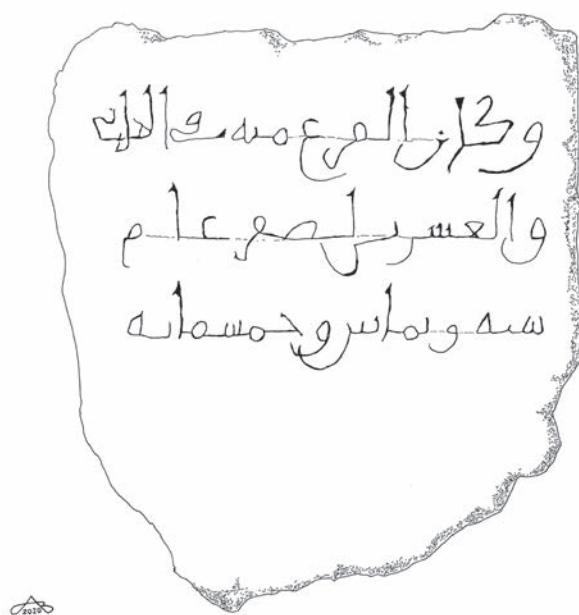 وكان الفرغ منه في
والعشرين لصفر عام
ستة وثمانين وخمسمائة
2020